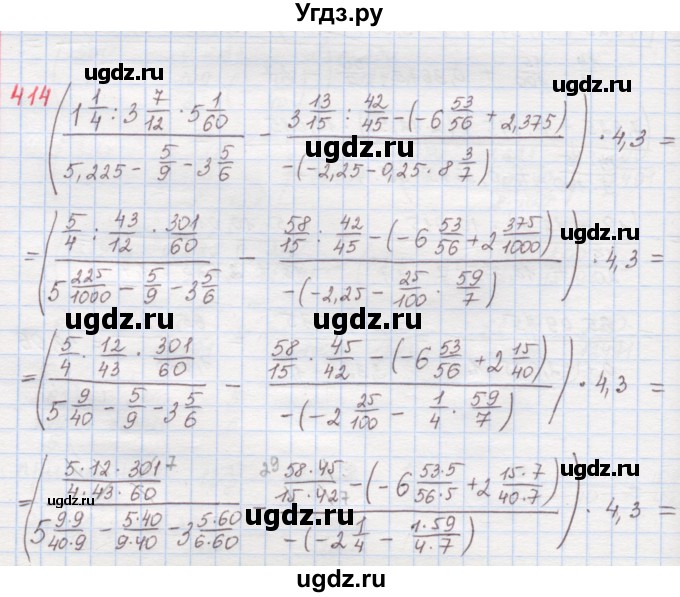 Угдз.ру
414 ( (1 1/4 : 3 7/12 · 5 1/60) / (5,225 − 5/9 − 3 5/6) − (3 13/15 : 42/45 − (−6 53/56 + 2,375)) / (−(−2,25 − 0,25 · 8 3/7)) ) · 4,3 =
ugdz.ru ugdz.ru
= ( (5/4 : 43/12 · 301/60) / (5 225/1000 − 5/9 − 3 5/6) − (58/15 : 42/45 − (−6 53/56 + 2 375/1000)) / (−(−2,25 − 25/100 · 59/7)) ) · 4,3 =
ugdz.ru ugdz.ru
= ( (5/4 · 12/43 · 301/60) / (5 9/40 − 5/9 − 3 5/6) − (58/15 · 45/42 − (−6 53/56 + 2 15/40)) / (−(−2 25/100 − 1/4 · 59/7)) ) · 4,3 =
ugdz.ru ugdz.ru
= ( (5·12·301 7 / 4·43·60) / (5 9·9/40·9 − 5·40/9·40 − 3 5·60/6·60) − (29 58·45 / 15·42 7 − (−6 53·5/56·5 + 2 15·7/40·7)) / (−(−2 1/4 − 1·59/4·7)) ) · 4,3 =
ugdz.ru ugdz.ru
ugdz.ru